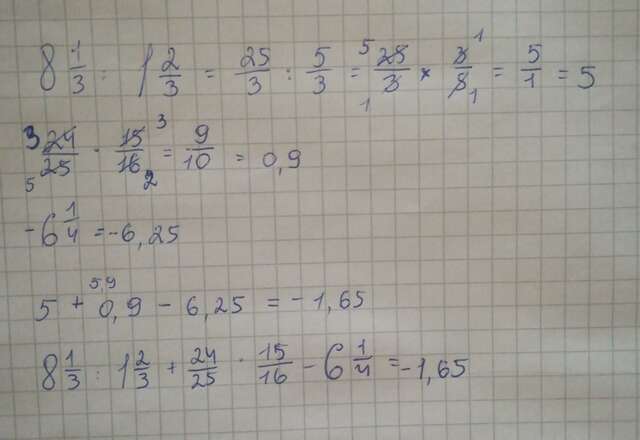 8 1/3 : 1 2/3 = 25/3 : 5/3 = 5 25/3 1 × 3 1/5 1 = 5/1 = 5
3 24/25 5 · 15 3/16 2 = 9/10 = 0,9
-6 1/4 = -6,25
5,9
5 + 0,9 - 6,25 = -1,65
8 1/3 : 1 2/3 + 24/25 · 15/16 - 6 1/4 = -1,65